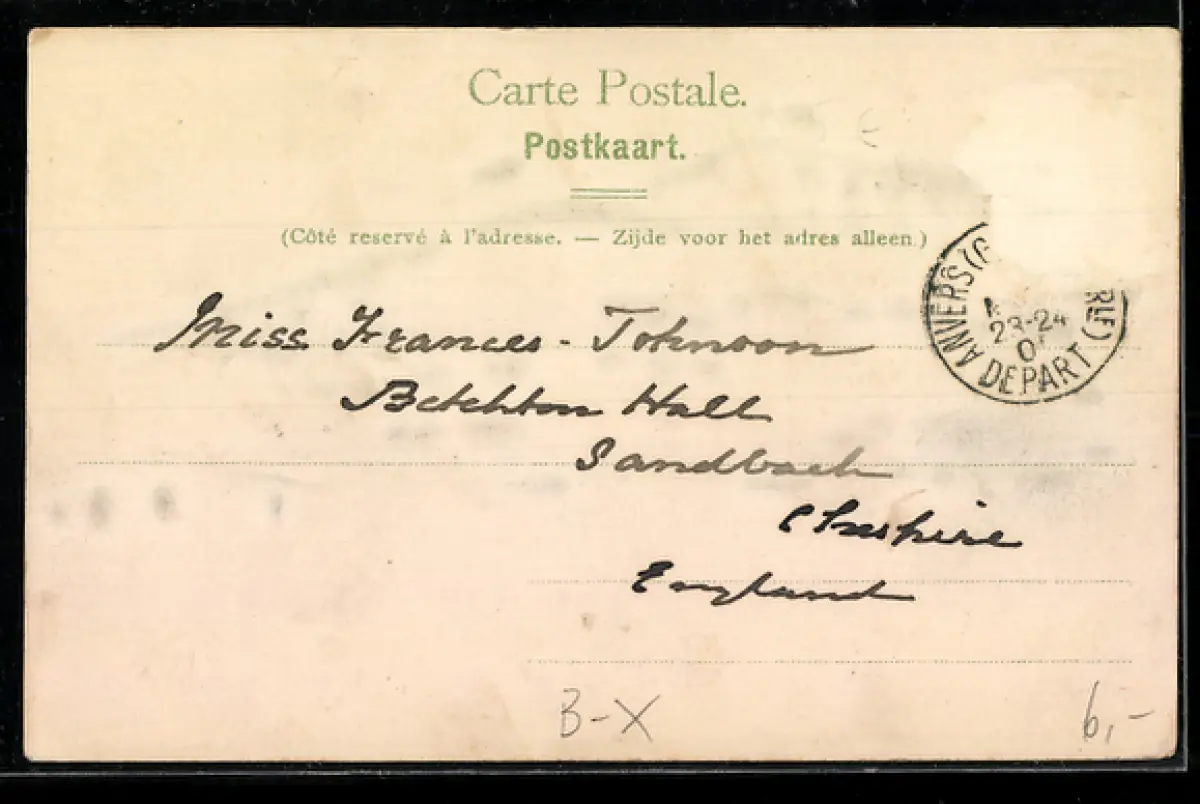 Carte Postale.
Postkaart.
(Côté reservé à l'adresse. — Zijde voor het adres alleen.)
ANVERS (G
RE)
23-24
0
DEPART
Miss Frances - Johnson
Betchton Hall
Sandbach
Cheshire
England
B-X
6,-